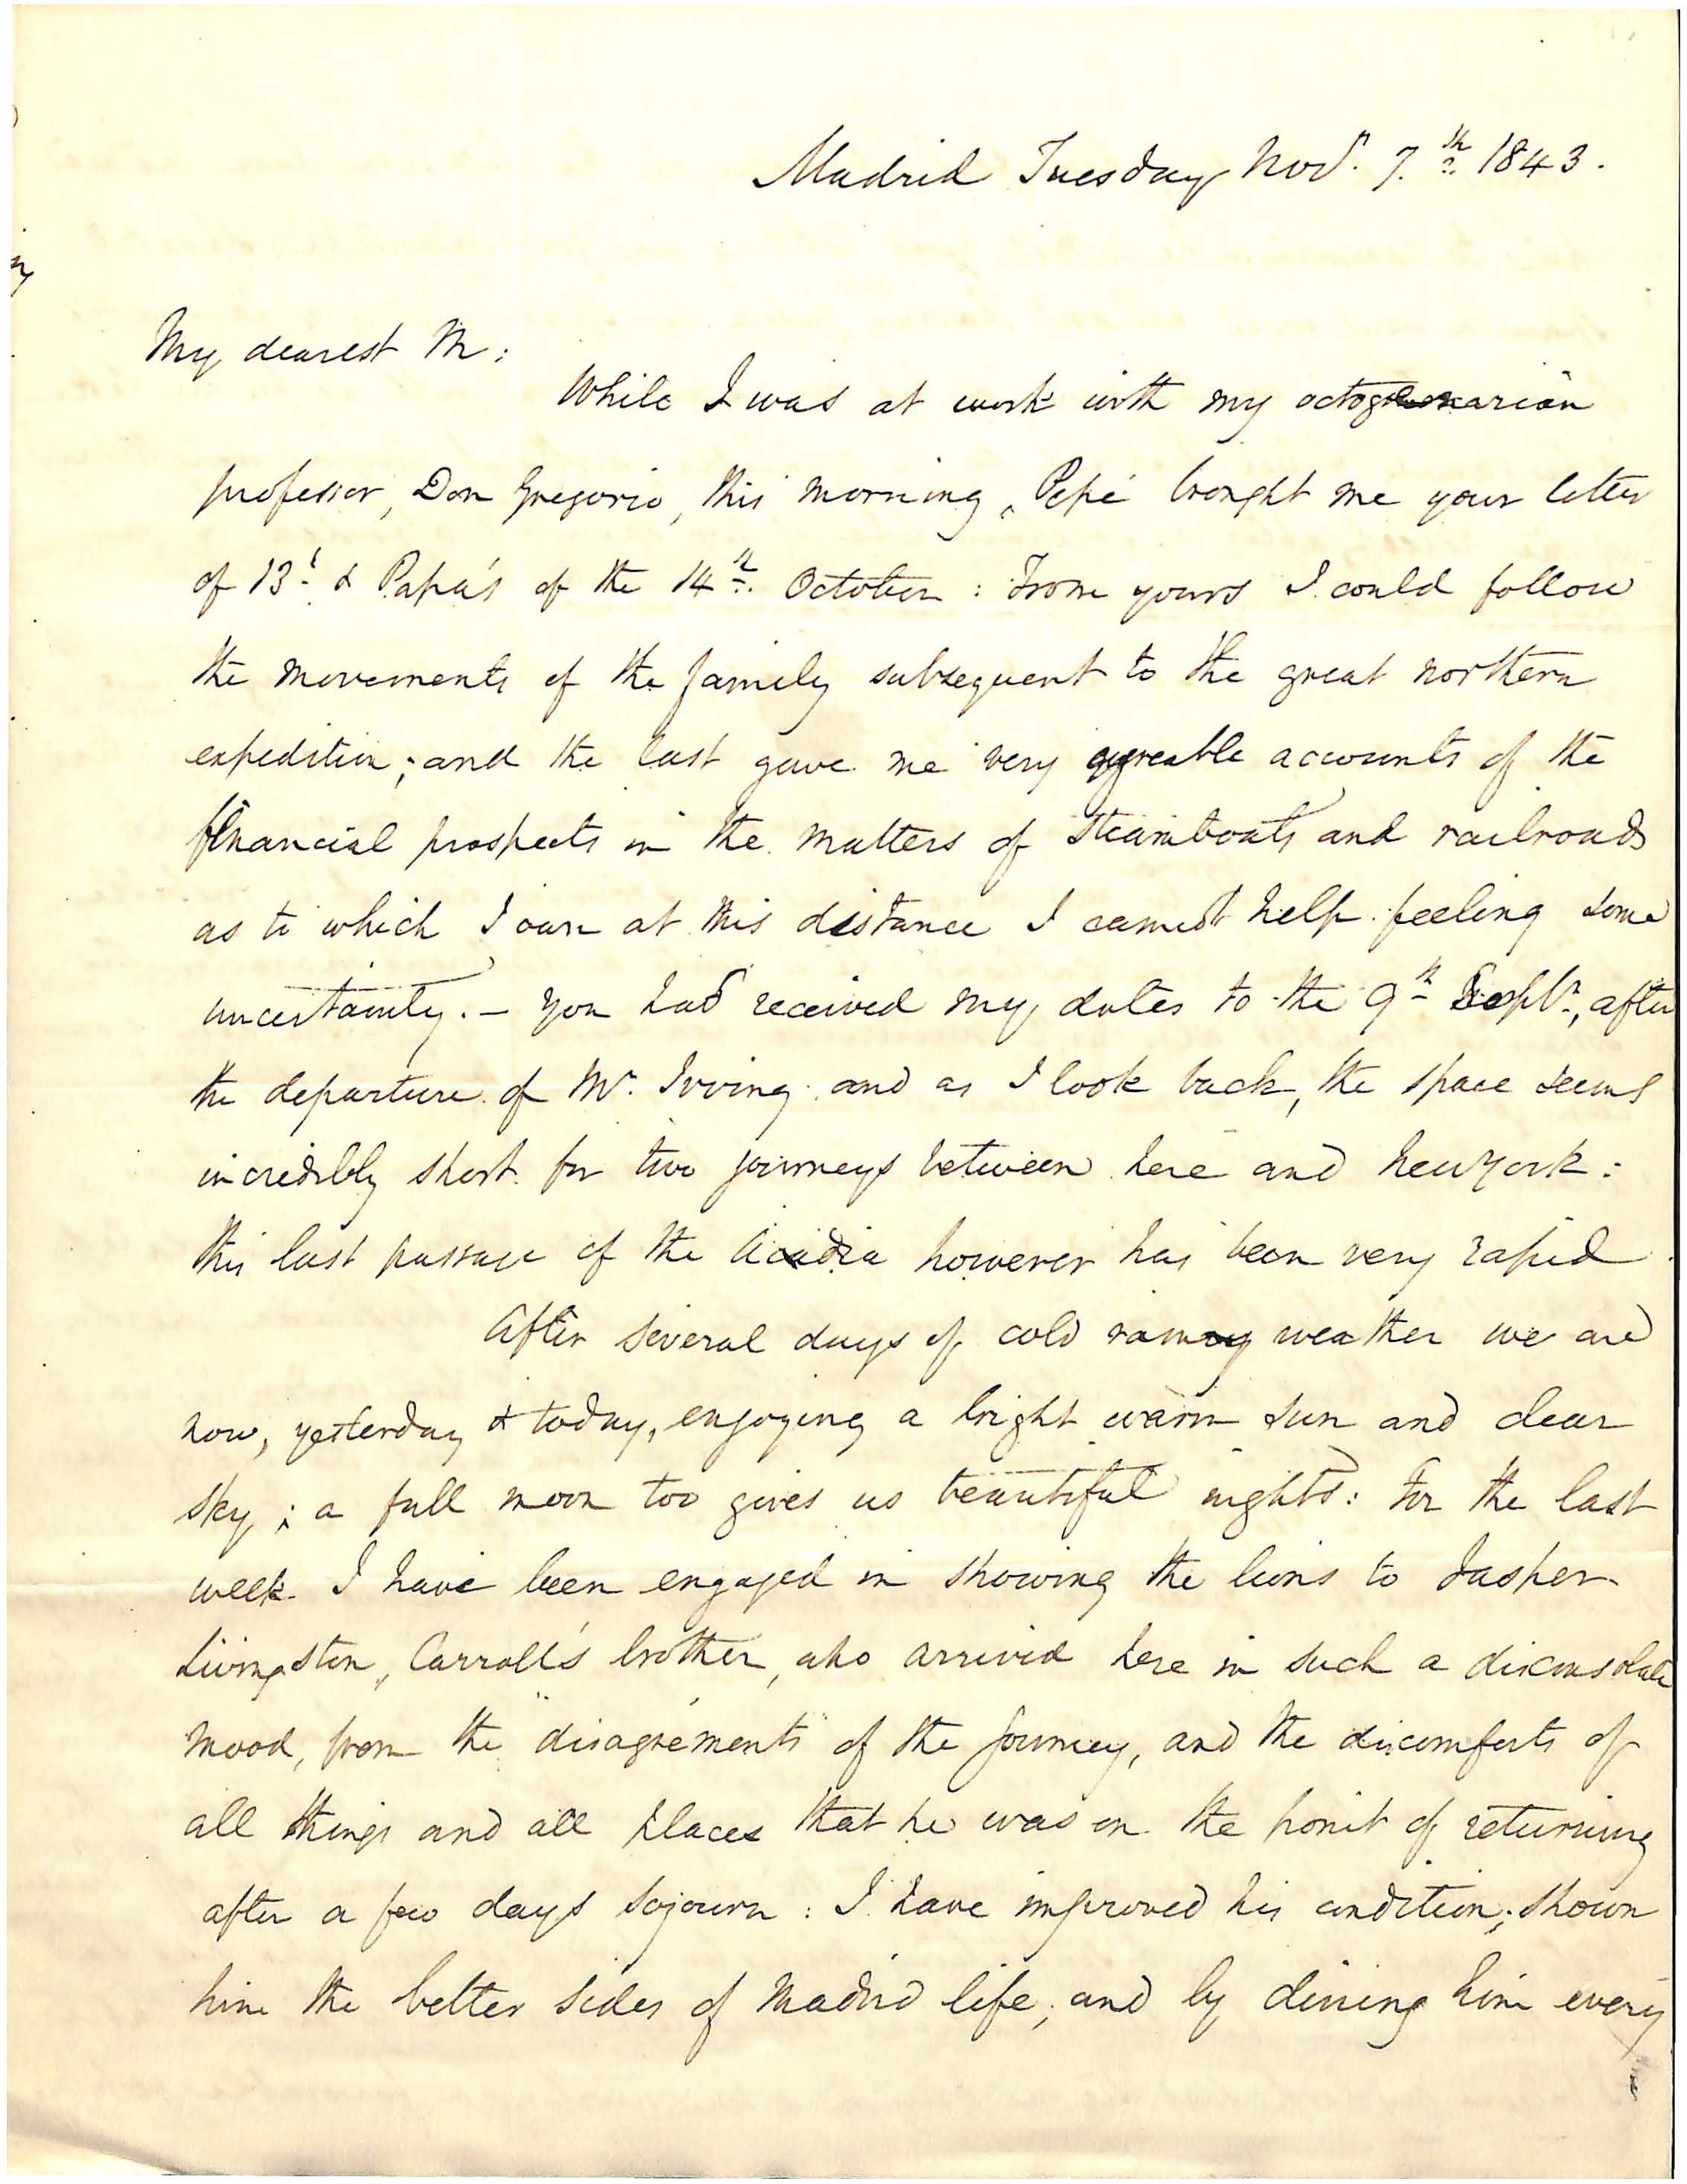 Madrid Tuesday Novr. 7.th 1843.
My dearest M:
While I was at work with my octogenarian
professor, Don Gregorio, this morning, Pepé brought me your letter
of 13t & Papa's of the 14th. October: From yours I could follow
the movements of the family subsequent to the great northern
expedition; and the last gave me very agreable accounts of the
financial prospects in the matters of steamboats and railroads
as to which I own at this distance I cannot help feeling some
uncertainty. — You had received my dates to the 9th Septr., after
the departure of Mr. Irving and as I look back, the space seems
incredibly short for two journeys between here and New York:
this last passage of the Acadia however has been very rapid.
After several days of cold rainy weather we are
now, yesterday & today, enjoying a bright warm sun and clear
sky; a full moon too gives us beautiful nights: For the last
week I have been engaged in showing the lions to Jasper
Livingston, Carroll's brother, who arrived here in such a disconsolate
mood, from the "disagréments" of the journey, and the discomforts of
all things and all places that he was on the point of returning
after a few days sojourn: I have improved his condition; shown
him the better sides of Madrid life; and by dining him every